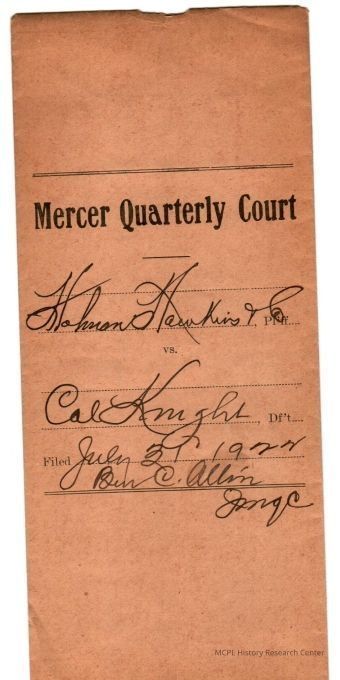 Mercer Quarterly Court
Holman Hawkins & Co, Pl'ff.
vs.
Cal Knight, Df't.
Filed July 31 1922
Ben C. Allin
JMQC
MCPL History Research Center